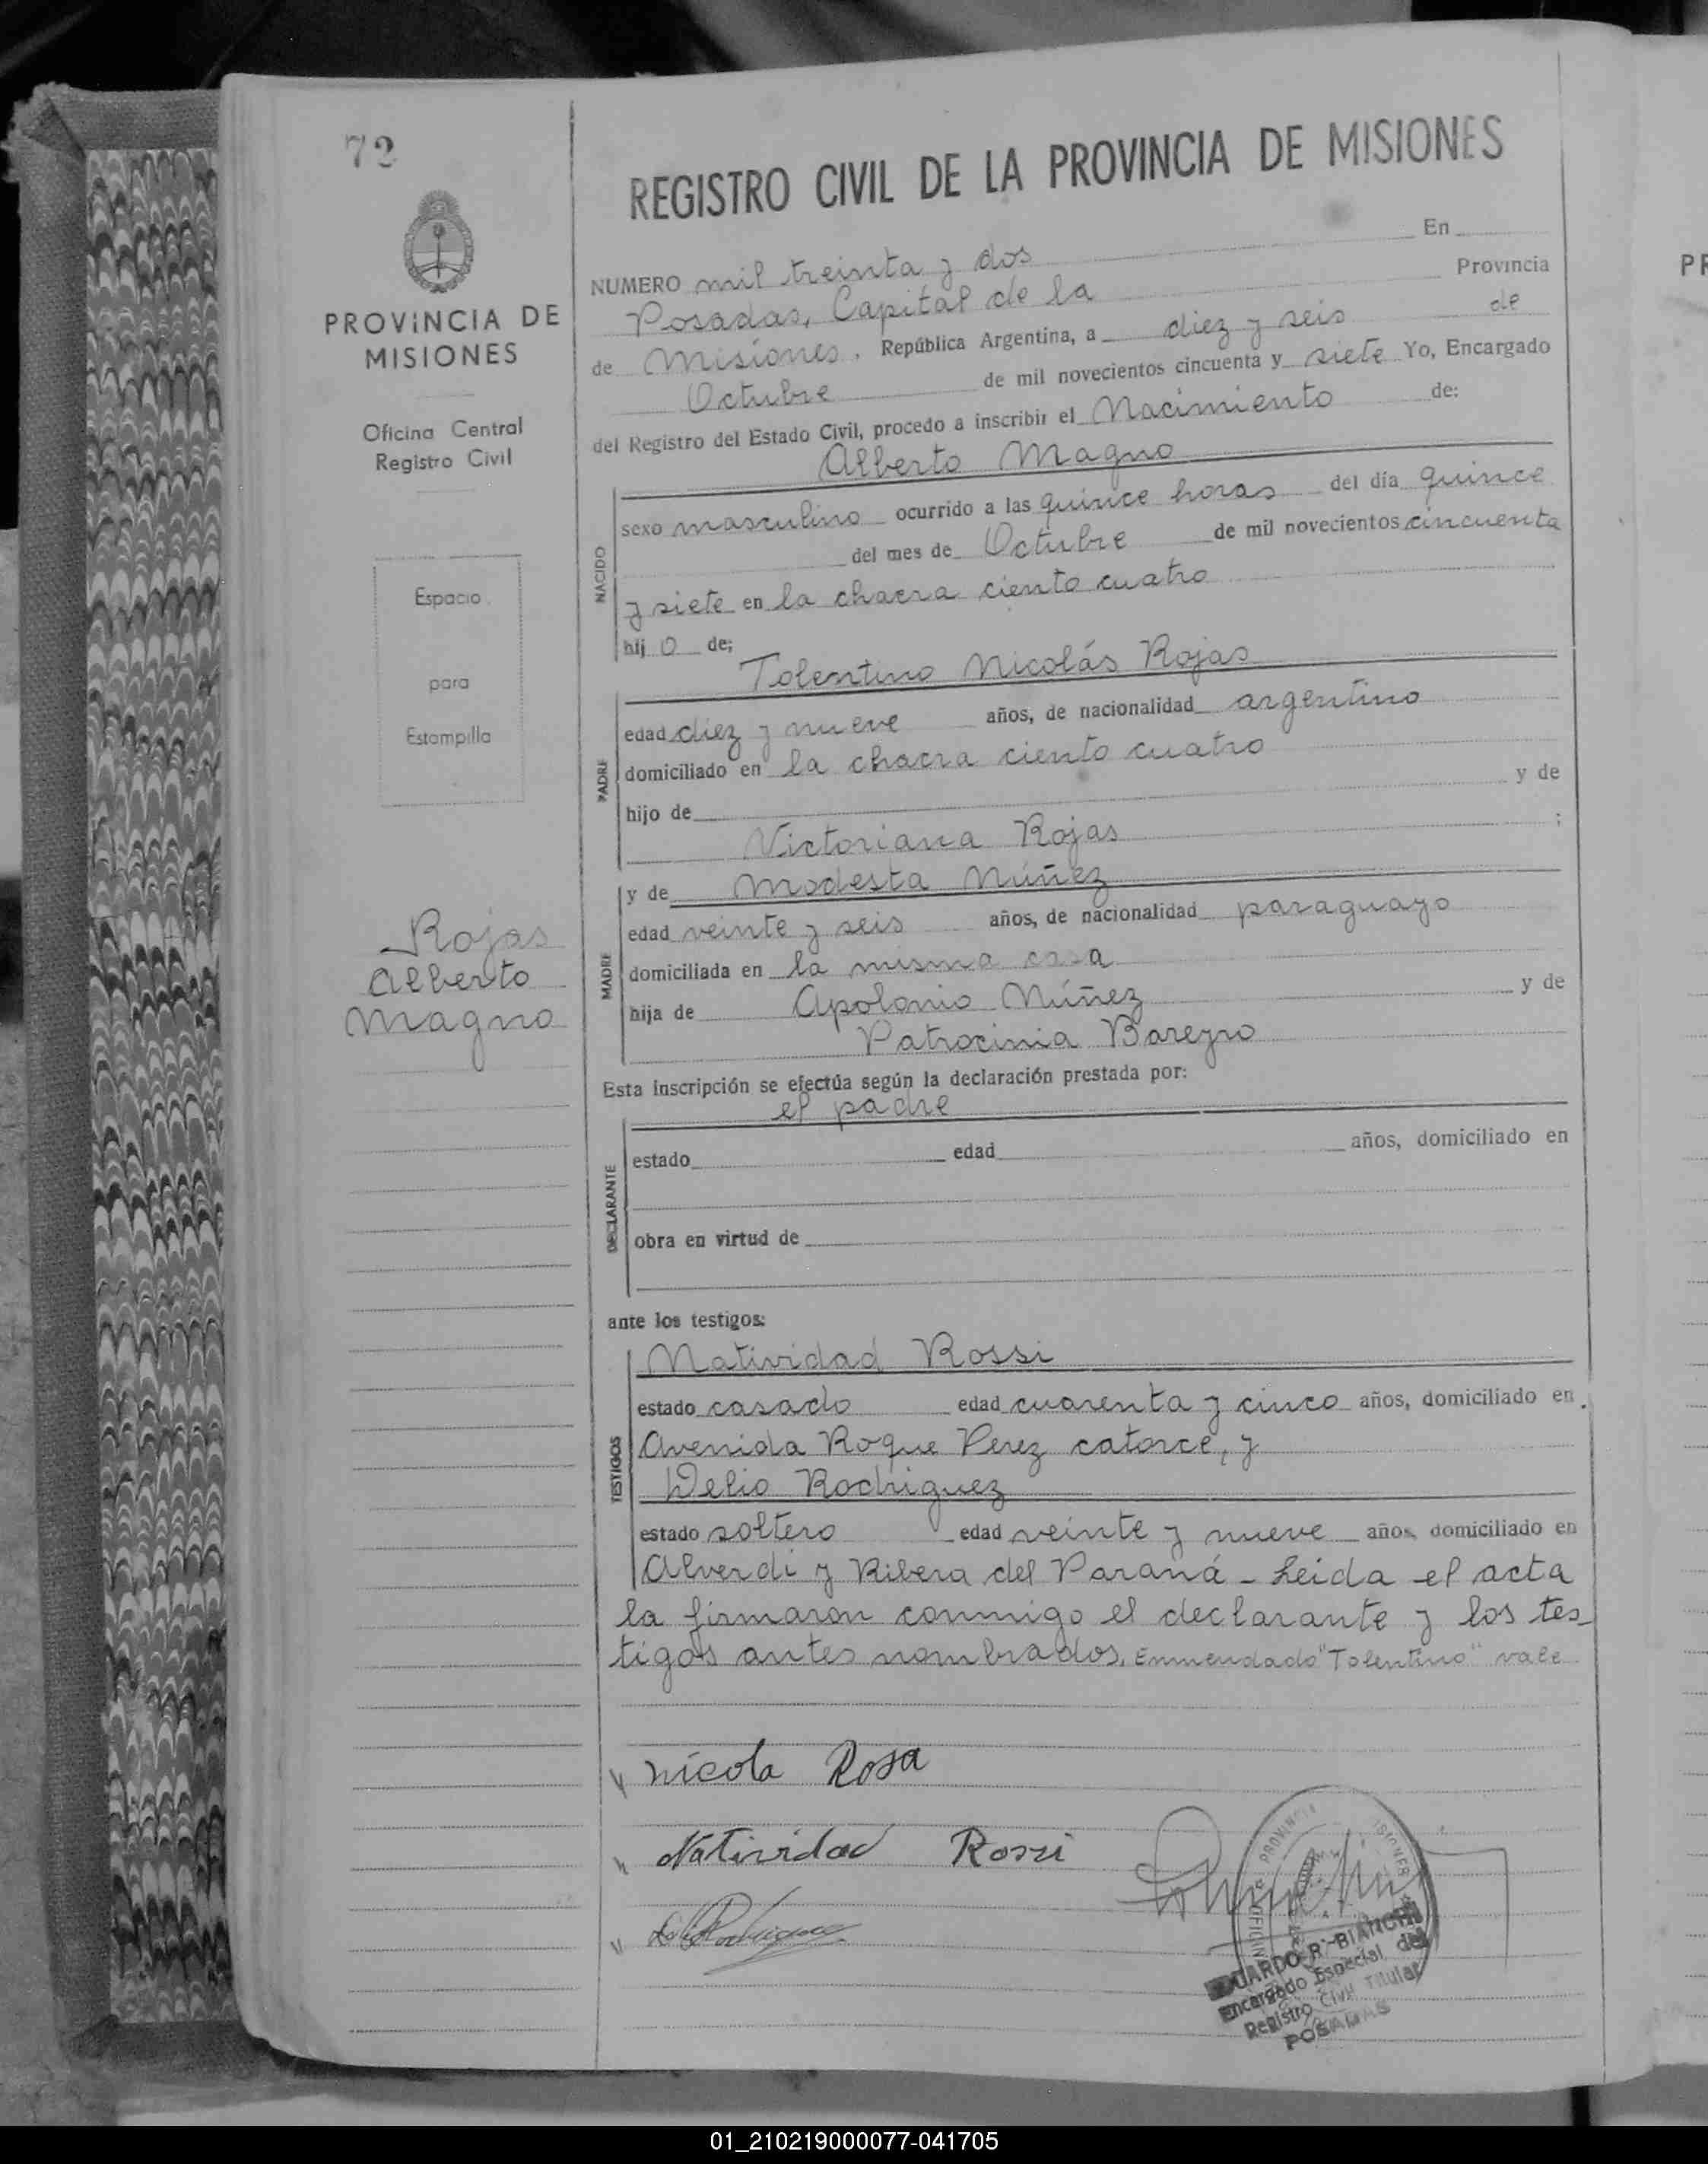 72
PROVINCIA DE
MISIONES
Oficina Central
Registro Civil
Espacio
para
Estampilla
Rojas
Alberto
Magno
REGISTRO CIVIL DE LA PROVINCIA DE MISIONES
NUMERO mil treinta y dos En
Posadas, Capital de la Provincia
de Misiones. República Argentina, a diez y seis de
Octubre de mil novecientos cincuenta y siete Yo, Encargado
del Registro del Estado Civil, procedo a inscribir el Nacimiento de:
Alberto Magno
NACIDO
sexo masculino ocurrido a las quince horas del día quince
del mes de Octubre de mil novecientos cincuenta
y siete en la chacra ciento cuatro
hij o de;
Tolentino Nicolás Rojas
PADRE
edad diez y nueve años, de nacionalidad argentino
domiciliado en la chacra ciento cuatro
hijo de y de
Victoriana Rojas ;
y de Modesta Núñez
MADRE
edad veinte y seis años, de nacionalidad paraguayo
domiciliada en la misma casa
hija de Apolonio Núñez y de
Patrocinia Bareyro
Esta inscripción se efectúa según la declaración prestada por:
el padre
DECLARANTE
estado edad años, domiciliado en
obra en virtud de
ante los testigos:
Natividad Rossi
TESTIGOS
estado casado edad cuarenta y cinco años, domiciliado en
Avenida Roque Perez catorce, y
Delio Rodriguez
estado soltero edad veinte y nueve años, domiciliado en
Alverdi y Ribera del Paraná - Leida el acta
la firmaron conmigo el declarante y los tes-
tigos antes nombrados. Enmendado "Tolentino" vale
nicola Rosa
Natividad Rossi
Rodriguez
PROVINCIA
Encargado Especial del
Registro Civil Titular
POSADAS
01_210219000077-041705